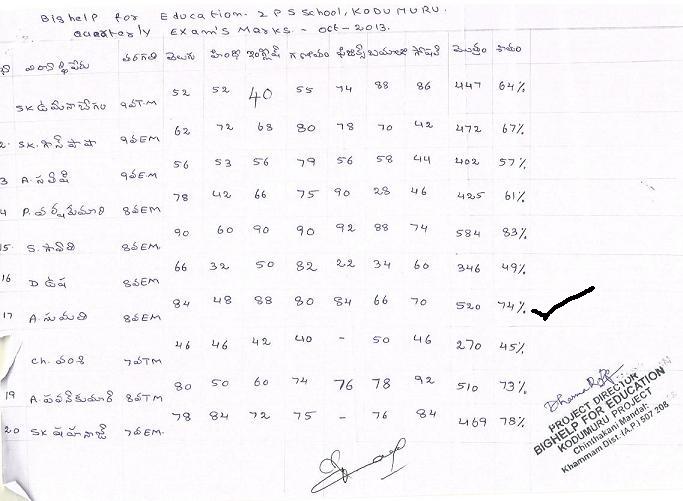 Bighelp for Education. Z P S School, KODUMURU.
Quarterly Exam's Marks - Oct-2013.
తరగతి తెలుగు హిందీ ఇంగ్లీష్ గణితం మొత్తం శాతం
9వTM 52 52 40 55 74 88 86 447 64%
2. SK. 9వEM 62 72 68 80 78 70 42 472 67%
3 A. 9వEM 56 53 56 79 56 58 44 402 57%
4 P. 8వEM 78 42 66 75 90 28 46 425 61%
15. S. 8వEM 90 60 90 90 92 88 74 584 83%
16 D ఉష 8వEM 66 32 50 82 22 34 60 346 49%
17 A. సుమతి 8వEM 84 48 88 80 84 66 70 520 74%
Ch. వంశి 7వTM 46 46 42 40 - 50 46 270 45%
19 A. పవన్ కుమార్ 8వTM 80 50 60 74 76 78 92 510 73%
20 SK షహనాజ్ 7వEM 78 84 72 75 - 76 84 469 78%
PROJECT DIRECTOR
BIGHELP FOR EDUCATION
KODUMURU PROJECT
Chinthakani Mandal,
Khammam Dist. (A.P.) 507 208